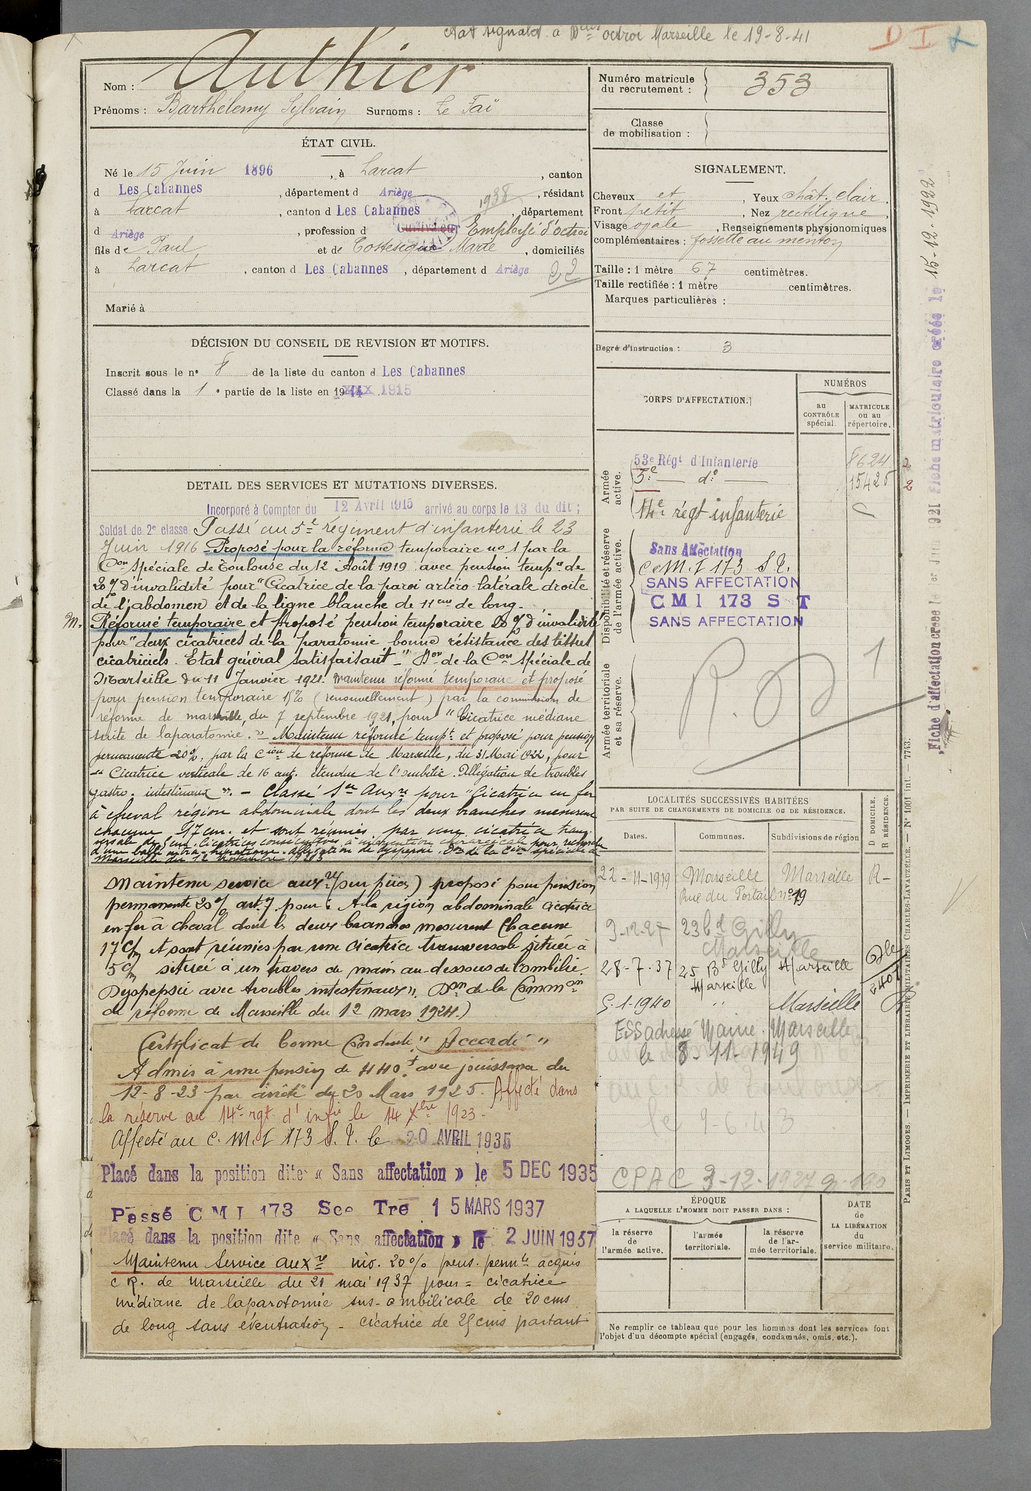 Etat signalet. a Don octroi Marseille le 19-8-41
D I
Nom : Authier
Prénoms : Barthélemy Sylvain Surnoms : Le Faï
Numéro matricule du recrutement : 353
Classe de mobilisation :
ÉTAT CIVIL.
Né le 15 Juin 1896, à Larcat, canton
d Les Cabannes, département d Ariège, résidant
à Larcat, canton d Les Cabannes 1938 département
d Ariège, profession d Cultivateur Employé d'octroi
fils de Paul et de Marie, domiciliés
à Larcat, canton d Les Cabannes, département d Ariège 22
Marié à
SIGNALEMENT.
Cheveux et, Yeux chât. clair.
Front petit, Nez rectiligne,
Visage ovale, Renseignements physionomiques
complémentaires : fossette au menton
Taille : 1 mètre 67 centimètres.
Taille rectifiée : 1 mètre centimètres.
Marques particulières :
Degré d'instruction : 3
DÉCISION DU CONSEIL DE REVISION ET MOTIFS.
Inscrit sous le n° 8 de la liste du canton d Les Cabannes
Classé dans la 1e partie de la liste en 1915
DETAIL DES SERVICES ET MUTATIONS DIVERSES.
Incorporé à Compter du 12 Avril 1915 arrivé au corps le 13 du dit ;
Soldat de 2e classe Passé au 5e régiment d'infanterie le 23
Juin 1916 Proposé pour la réforme temporaire no 1 par la
Con Spéciale de Toulouse du 12 Août 1919 avec pension tempre de
20 % d'invalidité pour "Cicatrice de la paroi antéro-latérale droite
de l'abdomen et de la ligne blanche de 11 cm de long.
M. Réformé temporaire et proposé pension temporaire 20 % d'invalidité
pour deux cicatrices de la paratomie bonne résistance des tissus
cicatriciels. Etat général satisfaisant" Don de la Con Spéciale de
Marseille du 11 Janvier 1921. Maintenu réformé temporaire et proposé
pour pension temporaire 15% (renouvellement) par la commission de
réforme de marseille, du 7 septembre 1921, pour "Cicatrice médiane
suite de laparatomie." Maintenu réformé tempre et proposé pour pension
permanente 20%, par la Cion de réforme de Marseille, du 31 Mai 1922, pour
"Cicatrice verticale de 16 cm, étendue de l'ombilic. Allégation de troubles
gastro. intestinaux". - Classé Sce Auxre pour "Cicatrice en fer
à cheval région abdominale dont les deux branches mesurent
chacune 17 cm. et sont réunies par une cicatrice trans
Maintenu service auxre (sur pièces) proposé pour pension
permanente 20% art 7 pour : A la région abdominale cicatrice
en fer à cheval dont les deux branches mesurent chacune
17 c/m et sont réunies par une cicatrice transversale située à
5 c/m située à un travers de main au-dessous de l'ombilic.
Dyspepsie avec troubles intestinaux". Don de la Common
de réforme de Marseille du 12 mars 1924.)
Certificat de bonne Conduite "Accordé"
Admis à une pension de 440 f avec jouissance du
12-8-23 par arrêté du 20 Mars 1925. Affecté dans
la réserve au 14e rgt d'infie le 14 Xbre 1923-
Affecté au C. M. I 173 S. T. le 20 AVRIL 1935
Placé dans la position dite « Sans affectation » le 5 DEC 1935
Passé CMI 173 Sce Tre 15 MARS 1937
Placé dans la position dite « Sans affectation » le 2 JUIN 1937
Maintenu Service auxre 20% pens. permte acquis
C R. de Marseille du 21 mai 1937 pour = cicatrice
médiane de laparotomie sus-ombilicale de 20 cms
de long sans éventration - cicatrice de 25 cms partant
CORPS D'AFFECTATION.
NUMÉROS
au CONTRÔLE spécial.
MATRICULE ou au répertoire.
Armée active.
53e Régt d'Infanterie 8624
5e d° 15425
14e régt infanterie
Disponibilité et réserve de l'armée active.
Sans Affectation
C M. I 173 S. T.
SANS AFFECTATION
CMI 173 S T
SANS AFFECTATION
Armée territoriale et sa réserve.
R. D 1
LOCALITÉS SUCCESSIVES HABITÉES
PAR SUITE DE CHANGEMENTS DE DOMICILE OU DE RÉSIDENCE.
Dates. Communes. Subdivisions de région
D DOMICILE. R RÉSIDENCE.
22-11-1919 Marseille Marseille R-
Rue du Portail n° 19
9-12-27 23 bd Gilly
Marseille
28-7-37 25 Bd Gilly Marseille
Marseille
5-1-1940 " Marseille
Marseille
le 8-11-1949
le 9-6-43
CPAC 3-12-1937
ÉPOQUE
A LAQUELLE L'HOMME DOIT PASSER DANS :
la réserve de l'armée active.
l'armée territoriale.
la réserve de l'armée territoriale.
DATE de LA LIBÉRATION du service militaire.
Ne remplir ce tableau que pour les hommes dont les services font
l'objet d'un décompte spécial (engagés, condamnés, omis, etc.).
Fiche matriculaire créée le 15-12-1922
PARIS ET LIMOGES. — IMPRIMERIE ET LIBRAIRIE MILITAIRES CHARLES-LAVAUZELLE. — N° 1001 Int. — 7743.